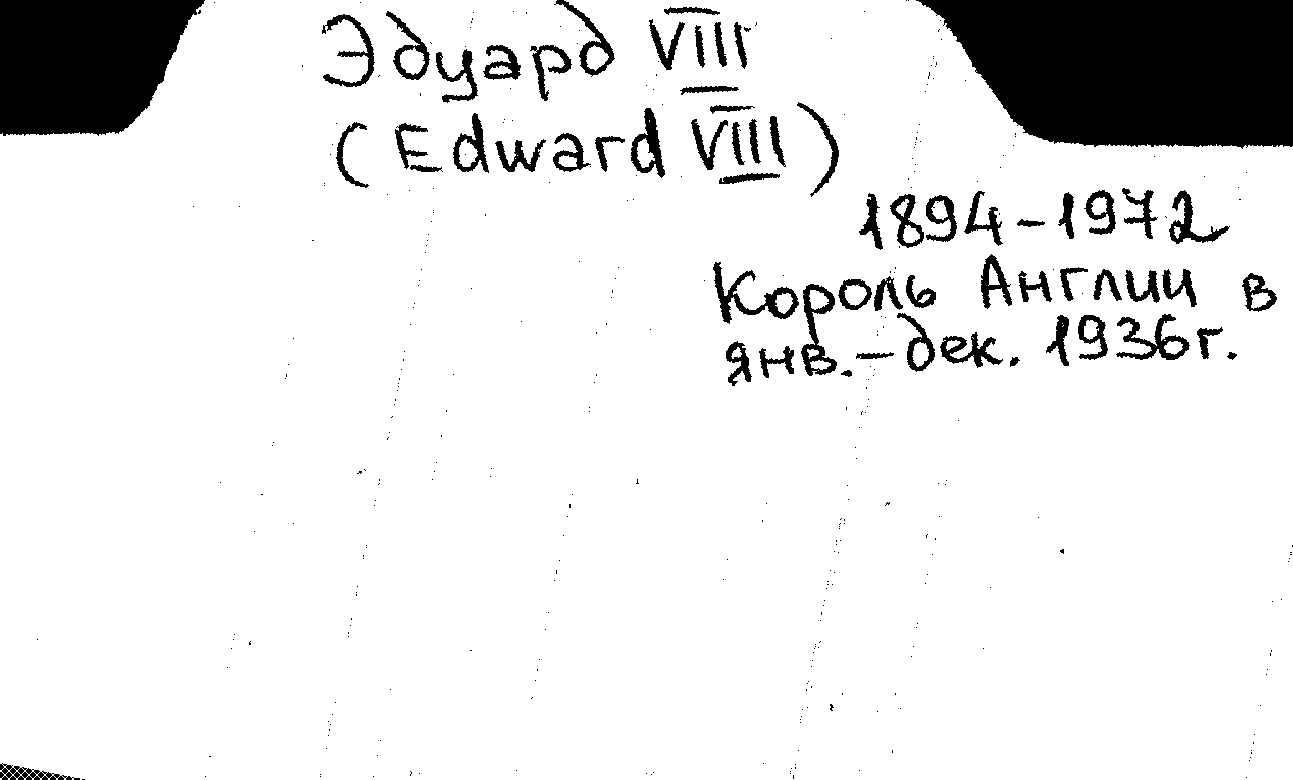 Эдуард VIII
(Edward VIII)
1894-1972
Король Англии в
янв.-дек. 1936г.